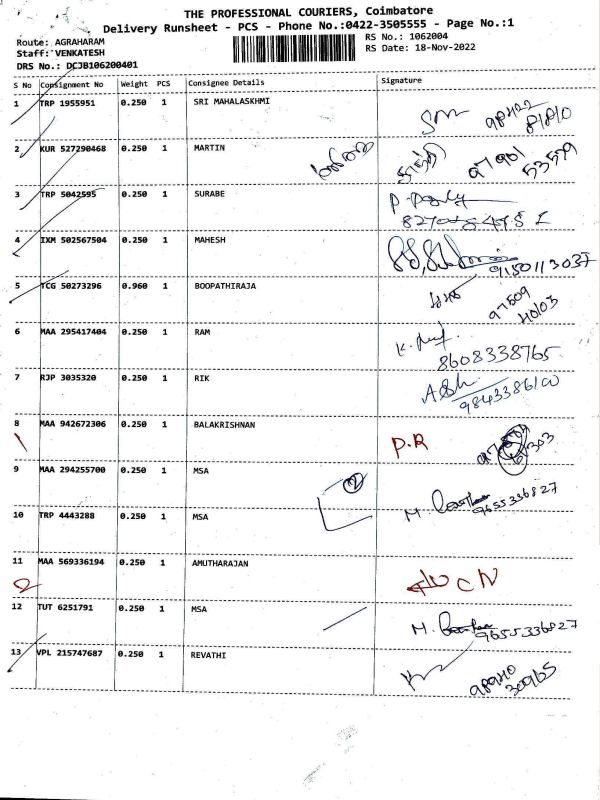 THE PROFESSIONAL COURIERS, Coimbatore
Delivery Runsheet - PCS - Phone No.:0422-3505555 - Page No.:1
Route: AGRAHARAM
RS No.: 1062004
Staff: VENKATESH
RS Date: 18-Nov-2022
DRS No.: DCJB106200401
S No Consignment No Weight PCS Consignee Details Signature
1 TRP 1955951 0.250 1 SRI MAHALASKHMI
98422
81810
2 KUR 527290468 0.250 1 MARTIN
97901
53579
3 TRP 5042595 0.250 1 SURABE
4 IXM 502567504 0.250 1 MAHESH
9150113037
5 TCG 50273296 0.960 1 BOOPATHIRAJA
97509
40103
6 MAA 295417404 0.250 1 RAM
8608338765
7 RJP 3035320 0.250 1 RIK
9843386100
8 MAA 942672306 0.250 1 BALAKRISHNAN
P.R
9 MAA 294255700 0.250 1 MSA
2
9655336827
10 TRP 4443288 0.250 1 MSA
11 MAA 569336194 0.250 1 AMUTHARAJAN
2
12 TUT 6251791 0.250 1 MSA
9655336827
13 VPL 215747687 0.250 1 REVATHI
98940
30965